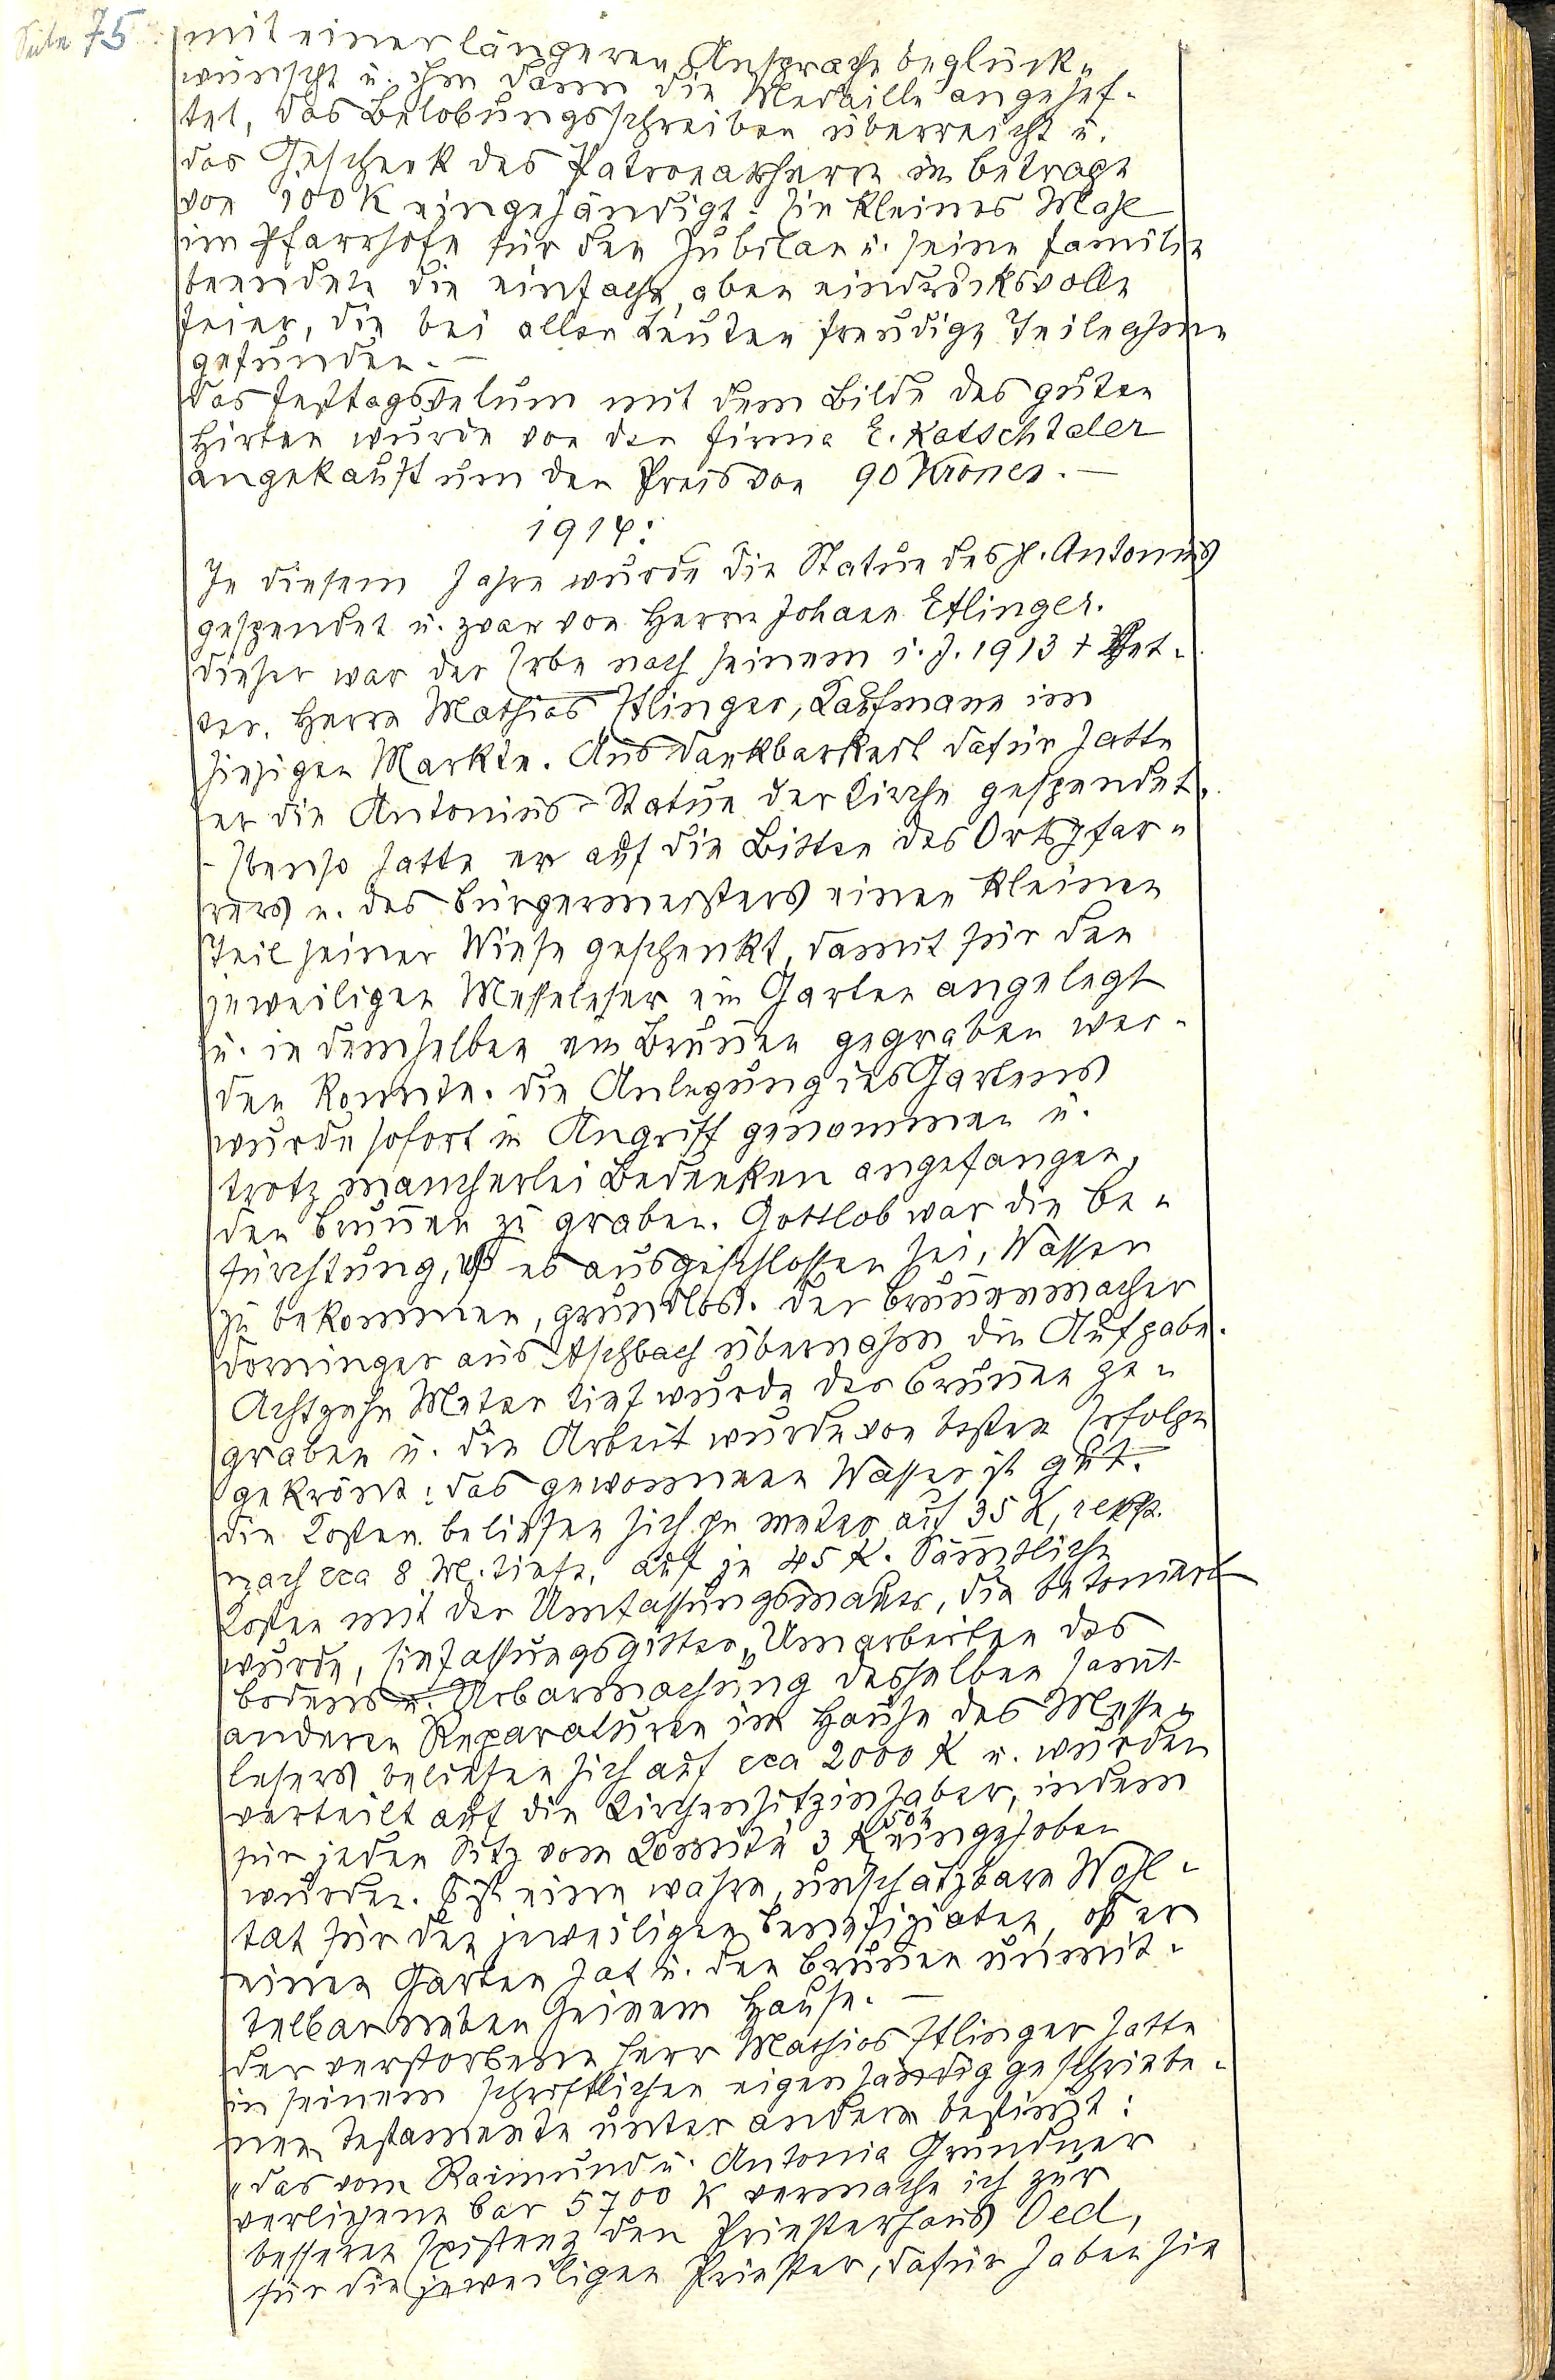 Seite 75
mit einer längeren Ansprache beglück-
wünscht u. ihm dann die Medaille angehef-
tet, das Belobungsschreiben überreicht u.
das Geschenk des Patronatsherrn im Betrage
von 100 K eingehändigt. Ein kleines Mahl
im Pfarrhofe für den Jubilar u. seine Familie
beendete die einfache, aber eindrucksvolle
Feier, die bei allen Leuten freudige Teilnahme
gefunden. –
Das Festtagsvelum mit dem Bilde des guten
Hirten wurde von der Firma E. Katschtaler
angekauft um den Preis von 90 Kronen. –
1914:
In diesem Jahre wurde die Statue des hl. Antonius
gespendet u. zwar von Herrn Johann Etlinger.
Dieser war der Erbe nach seinem i. J. 1913 † Vet-
ter, Herrn Mathias Etlinger, Kaufmann im
hiesigen Markte. Aus Dankbarkeit dafür hatte
er die Antonius-Statue der Kirche gespendet.
– Ebenso hatte er auf die Bitten des Ortspfar-
rers u. des Bürgermeisters einen kleinen
Teil seiner Wiese geschenkt, damit für den
jeweiligen Messeleser ein Garten angelegt
u. in demselben ein Brunnen gegraben wer-
den konnte. Die Anlegung des Gartens
wurde sofort in Angriff genommen u.
trotz mancherlei Bedenken angefangen,
den Brunnen zu graben. Gottlob war die Be-
fürchtung, daß es ausgeschlossen sei, Wasser
zu bekommen, grundlos. Der Brunnenmacher
Dorninger aus Aschbach übernahm die Aufgabe.
Achtzehn Meter tief wurde der Brunnen ge-
graben u. die Arbeit wurde von bestem Erfolge
gekrönt: das gewonnene Wasser ist gut.
Die Kosten beliefen sich per Meter auf 35 K, resp.
nach cca 8 M. Tiefe, auf je 45 K. Sämtliche
Kosten mit der Umfassungsmauer, die betoniert
wurde, Einfassungsgitter, Umarbeiten des
Bodens u. Urbarmachung desselben samt
anderen Reparaturen im Hause des Messe-
lesers beliefen sich auf cca 2000 K u. wurden
verteilt auf die Kirchensitzinhaber, indem
für jeden Sitz vom Komité 3 K 50 h eingehoben
wurden. Es ist eine wahre, unschätzbare Wohl-
tat für den jeweiligen Benefiziaten, daß er
einen Garten hat u. den Brunnen unmit-
telbar neben seinem Hause. –
Der verstorbene Herr Mathias Etlinger hatte
in seinem schriftlichen eigenhändig geschriebe-
nen Testamente unter andern bestimmt:
„Das vom Raimund u. Antonia Grundner
verliehene bar 5700 K vermache ich zur
besseren Existenz den Priesterhaus Oed,
für die jeweiligen Priester, dafür haben sie